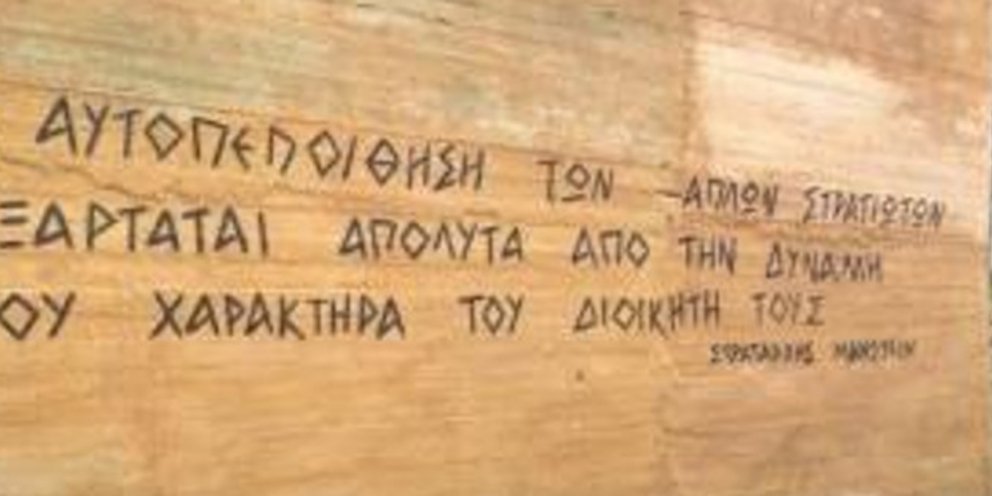 ΑΥΤΟΠΕΠΟΙΘΗΣΗ ΤΩΝ ΑΠΛΩΝ ΣΤΡΑΤΙΩΤΩΝ
ΞΑΡΤΑΤΑΙ ΑΠΟΛΥΤΑ ΑΠΟ ΤΗΝ ΔΥΝΑΜΗ
ΟΥ ΧΑΡΑΚΤΗΡΑ ΤΟΥ ΔΙΟΙΚΗΤΗ ΤΟΥΣ
ΣΤΡΑΤΑΡΧΗΣ